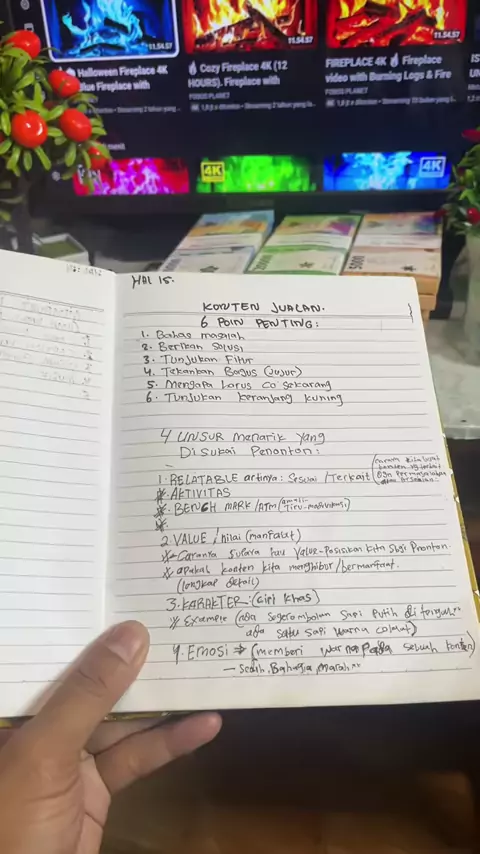 11.54.57
11.54.57
11.54.57
Halloween Fireplace 4K
Blue Fireplace with
Cozy Fireplace 4K (12
HOURS). Fireplace with
FIREPLACE 4K Fireplace
video with Burning Logs & Fire
4K
4K
5000
HAL 15.
KONTEN JUALAN.
6 POIN PENTING:
1. Bahas masalah
2. Berikan Solusi
3. Tunjukan Fitur
4. Tekankan Bagus (Jujur)
5. Mengapa harus CO sekarang
6. Tunjukan keranjang kuning
4 UNSUR menarik yang
Disukai Penonton:
1. RELATABLE artinya: Sesuai / Terkait
* AKTIVITAS
* BENCH MARK / ATM (amati - tiru - modifikasi)
*
2. VALUE / nilai (manfaat)
* Caranya supaya tau Value - Posisikan kita sbgi Pnonton.
* apakah konten kita menghibur / bermanfaat.
(lengkap detail)
3. KARAKTER: (ciri khas)
* Example (ada segerombolan sapi putih di tengah"
ada satu sapi warna coklat)
4. Emosi → (memberi warna pada sebuah konten)
— Sedih, Bahagia, marah"